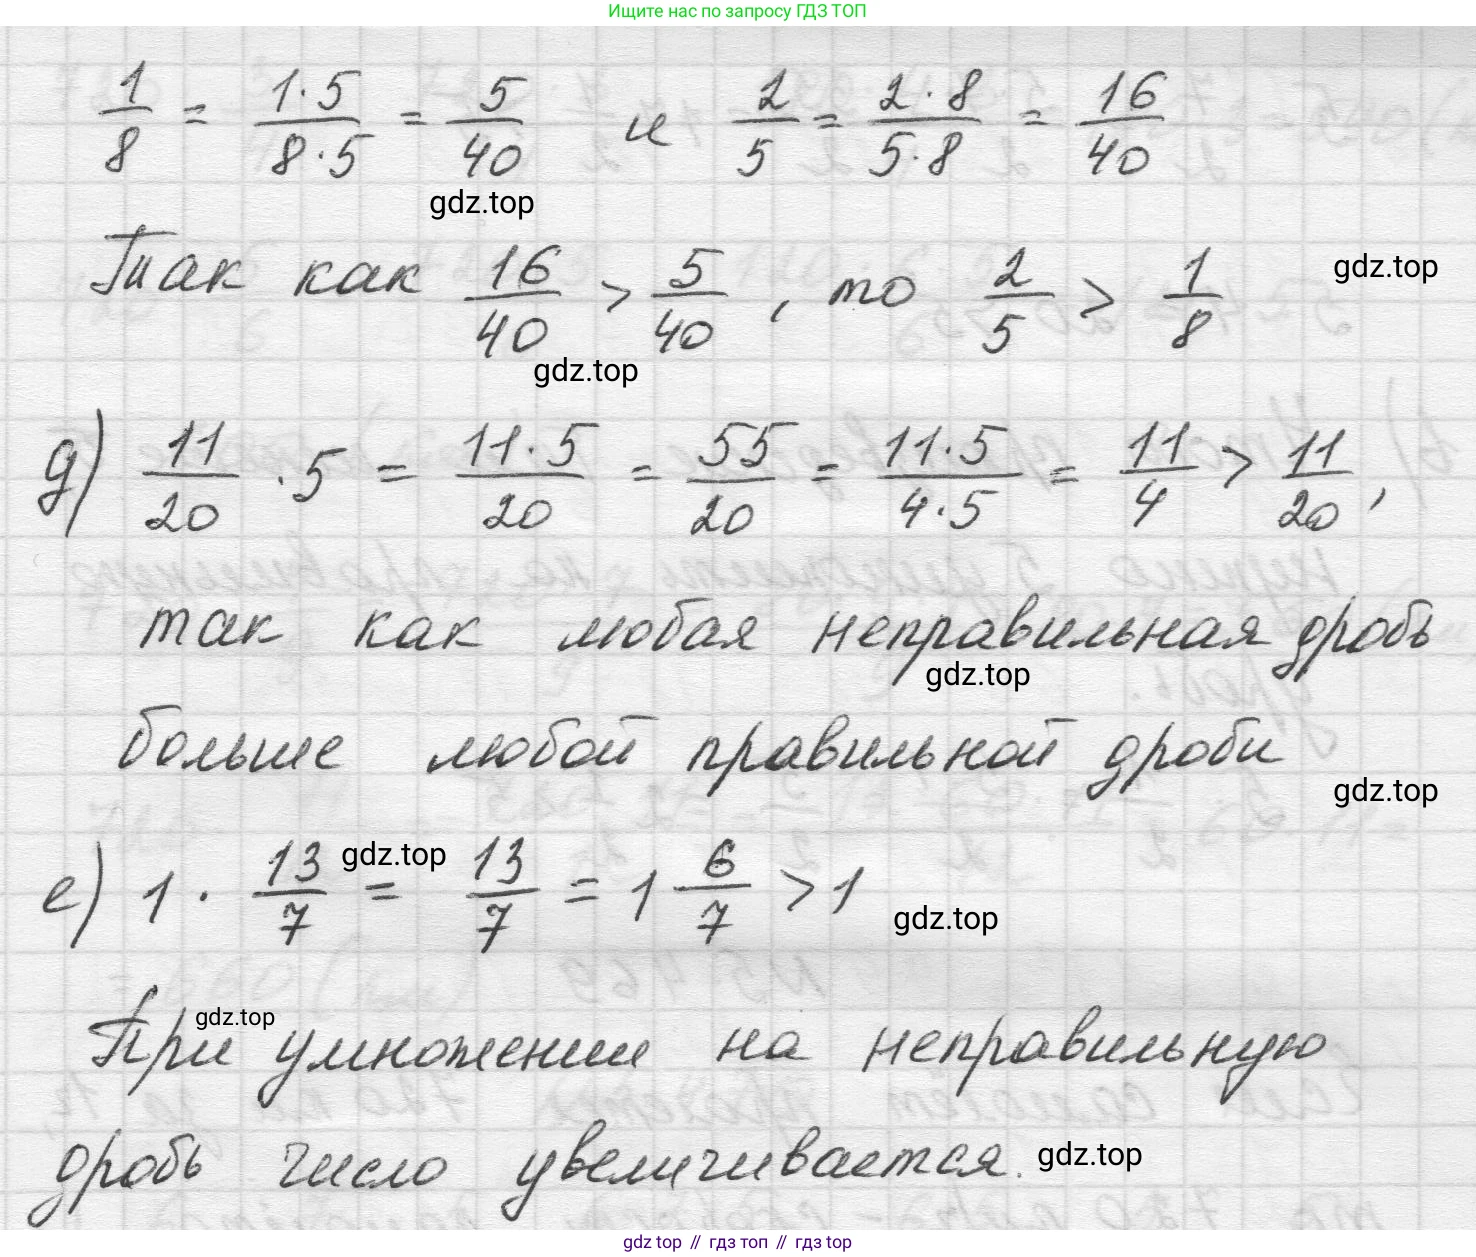 Ищите нас по запросу ГДЗ ТОП
1/8 = 1·5/8·5 = 5/40 и 2/5 = 2·8/5·8 = 16/40
gdz.top
Так как 16/40 > 5/40, то 2/5 > 1/8
gdz.top
gdz.top
д) 11/20 · 5 = 11·5/20 = 55/20 = 11·5/4·5 = 11/4 > 11/20,
так как любая неправильная дробь
gdz.top
больше любой правильной дроби
gdz.top
е) 1 · 13/7 = 13/7 = 1 6/7 > 1
gdz.top
gdz.top
gdz.top
При умножении на неправильную
дробь число увеличивается.
gdz.top
gdz top // гдз топ // гдз top